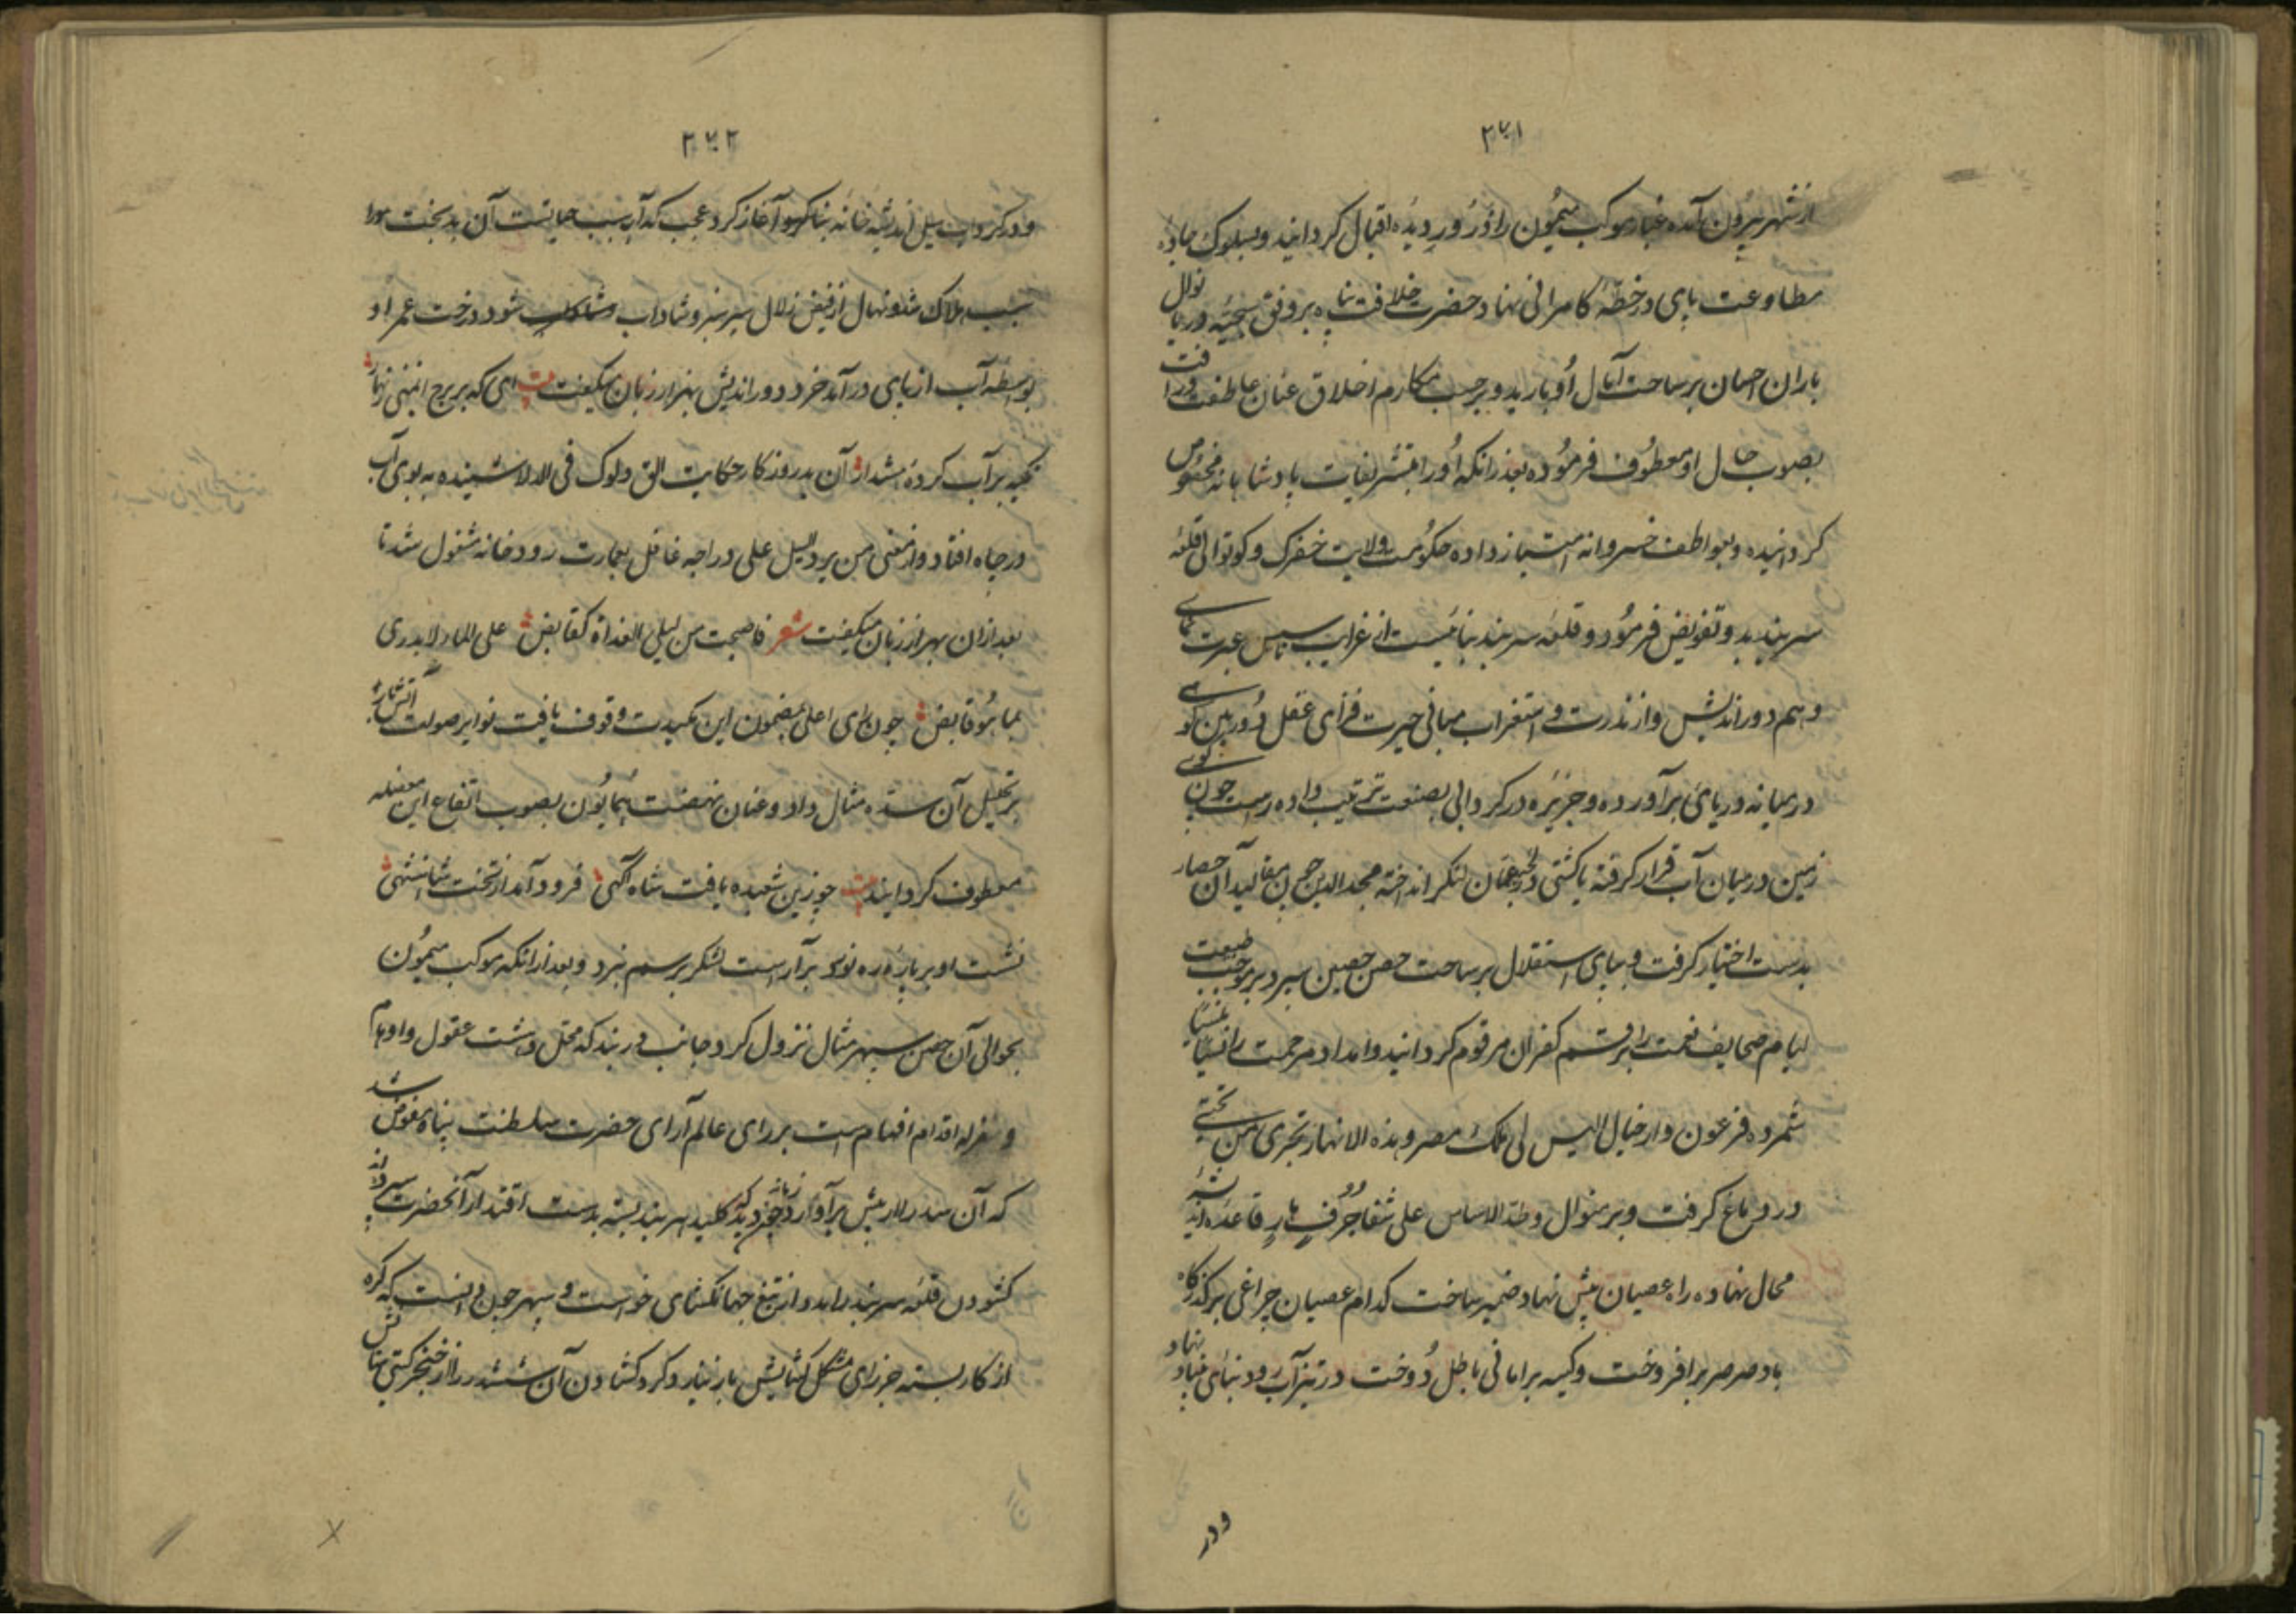 ۳۷۱
از شهر بیرون آمده غبار موکب میمون را ذرور دیده اقبال کردانید و بسلوک جاده
مطاوعت پای در خطه کامرانی نهاد حضرت خلافت پناه بر وفق سجیه دریا نوال
باران احسان بر ساحت آمال او بارید و بر حسب مکارم اخلاق عنان عاطفت و رافت
بصوب حال او معطوف فرموده بعد از انکه او را بتشریفات پادشاهانه مخصوص
کردانیده و بعواطف خسروانه امتیاز داده حکومت ولایت خفرک و کوتوالی قلعه
سربند بدو تفویض فرمود و قلعه سربند بنائیست از غرایب اساس عبرت نمای
وهم دوراندیش و از ندرت و استغراب مبانی حیرت فزای عقل دوربین کوئی
در میانه دریای برآورده و جزیره در کردابی بصنعت ترتیب داده راست چون کوی
زمین در میان آب قرار کرفته یا کشتی در لجه عمان لنکر انداخته مجدالدین چون مقالید آن حصار
بدست اختیار کرفت و بپای استقلال بر ساحت حصن حصین سپرد بر موجب طبیعت
لیام صحایف نعمت را برقم کفران مرقوم کردانید و امداد مرحمت را نسیا منسیا
شمرده فرعون وار خیال الیس لی ملک مصر و هذه الانهار تجری من تحتی
در دماغ کرفت و بر منوال وطد الاساس علی شفا جرف هار قاعده اندیشه
محال نهاده راه عصیان پیش نهاد ضمیر ساخت کدام عصیان چراغی بر کذرکاه
باد صرصر برافروخت و کیسه بر امانی باطل دوخت در تیزآب رود بنای بنیاد نهاد
و در
۳۷۲
و در کرداب سیل اندیشه خانه بنا کرد و آغاز کرد عجب که آب سبب حیاتست آن بدبخت را
سبب هلاک شد و نهال از فیض زلال سرسبز و شاداب شود درخت عمر او
بواسطه آب از پای درآمد خرد دوراندیش بهزار زبان میکفت بیت ای که بر برج ایمنی زنهار
تکیه بر آب کرده هشدار آن بدروزکار حکایت الق دلوک فی الدلا شنیده به بوی آب
در چاه افتاد و از معنی من یرد السیل علی دراجه غافل بعمارت رودخانه مشغول شد تا
بعد از آن بهزار زبان میکفت شعر فاصبحت من لیلی الغداة کقابض علی الماء لا یدری
بما هو قابض چون رای اعلی بمضمون این مکیدت وقوف یافت نوایر صولت آتش‌بار
بر تحلیل آن سده مثال داد و عنان نهضت همایون بصوب اتفاع این معضله
معطوف کردانید بیت چو زین شعبده یافت شاه آکهی فرود آمد از تخت شاهنشهی
نشست او بر باره ره نورد برآراست لشکر برسم نبرد و بعد از انکه موکب میمون
بحوالی آن حصن سپهر مثال نزول کرد و جانب دربند که محل دهشت عقول و اوهام
و مزله اقدام افهام است بر رای عالم آرای حضرت سلطنت پناه مفوض شد
کشودن قلعه سربند را مدد از تیغ جهانکشای خواست و سپهر چون دانست که کره
از کار بسته جز رای مشکل کشایش باز نیارد کرد کشادن آن ششدر را از خنجر کیتی